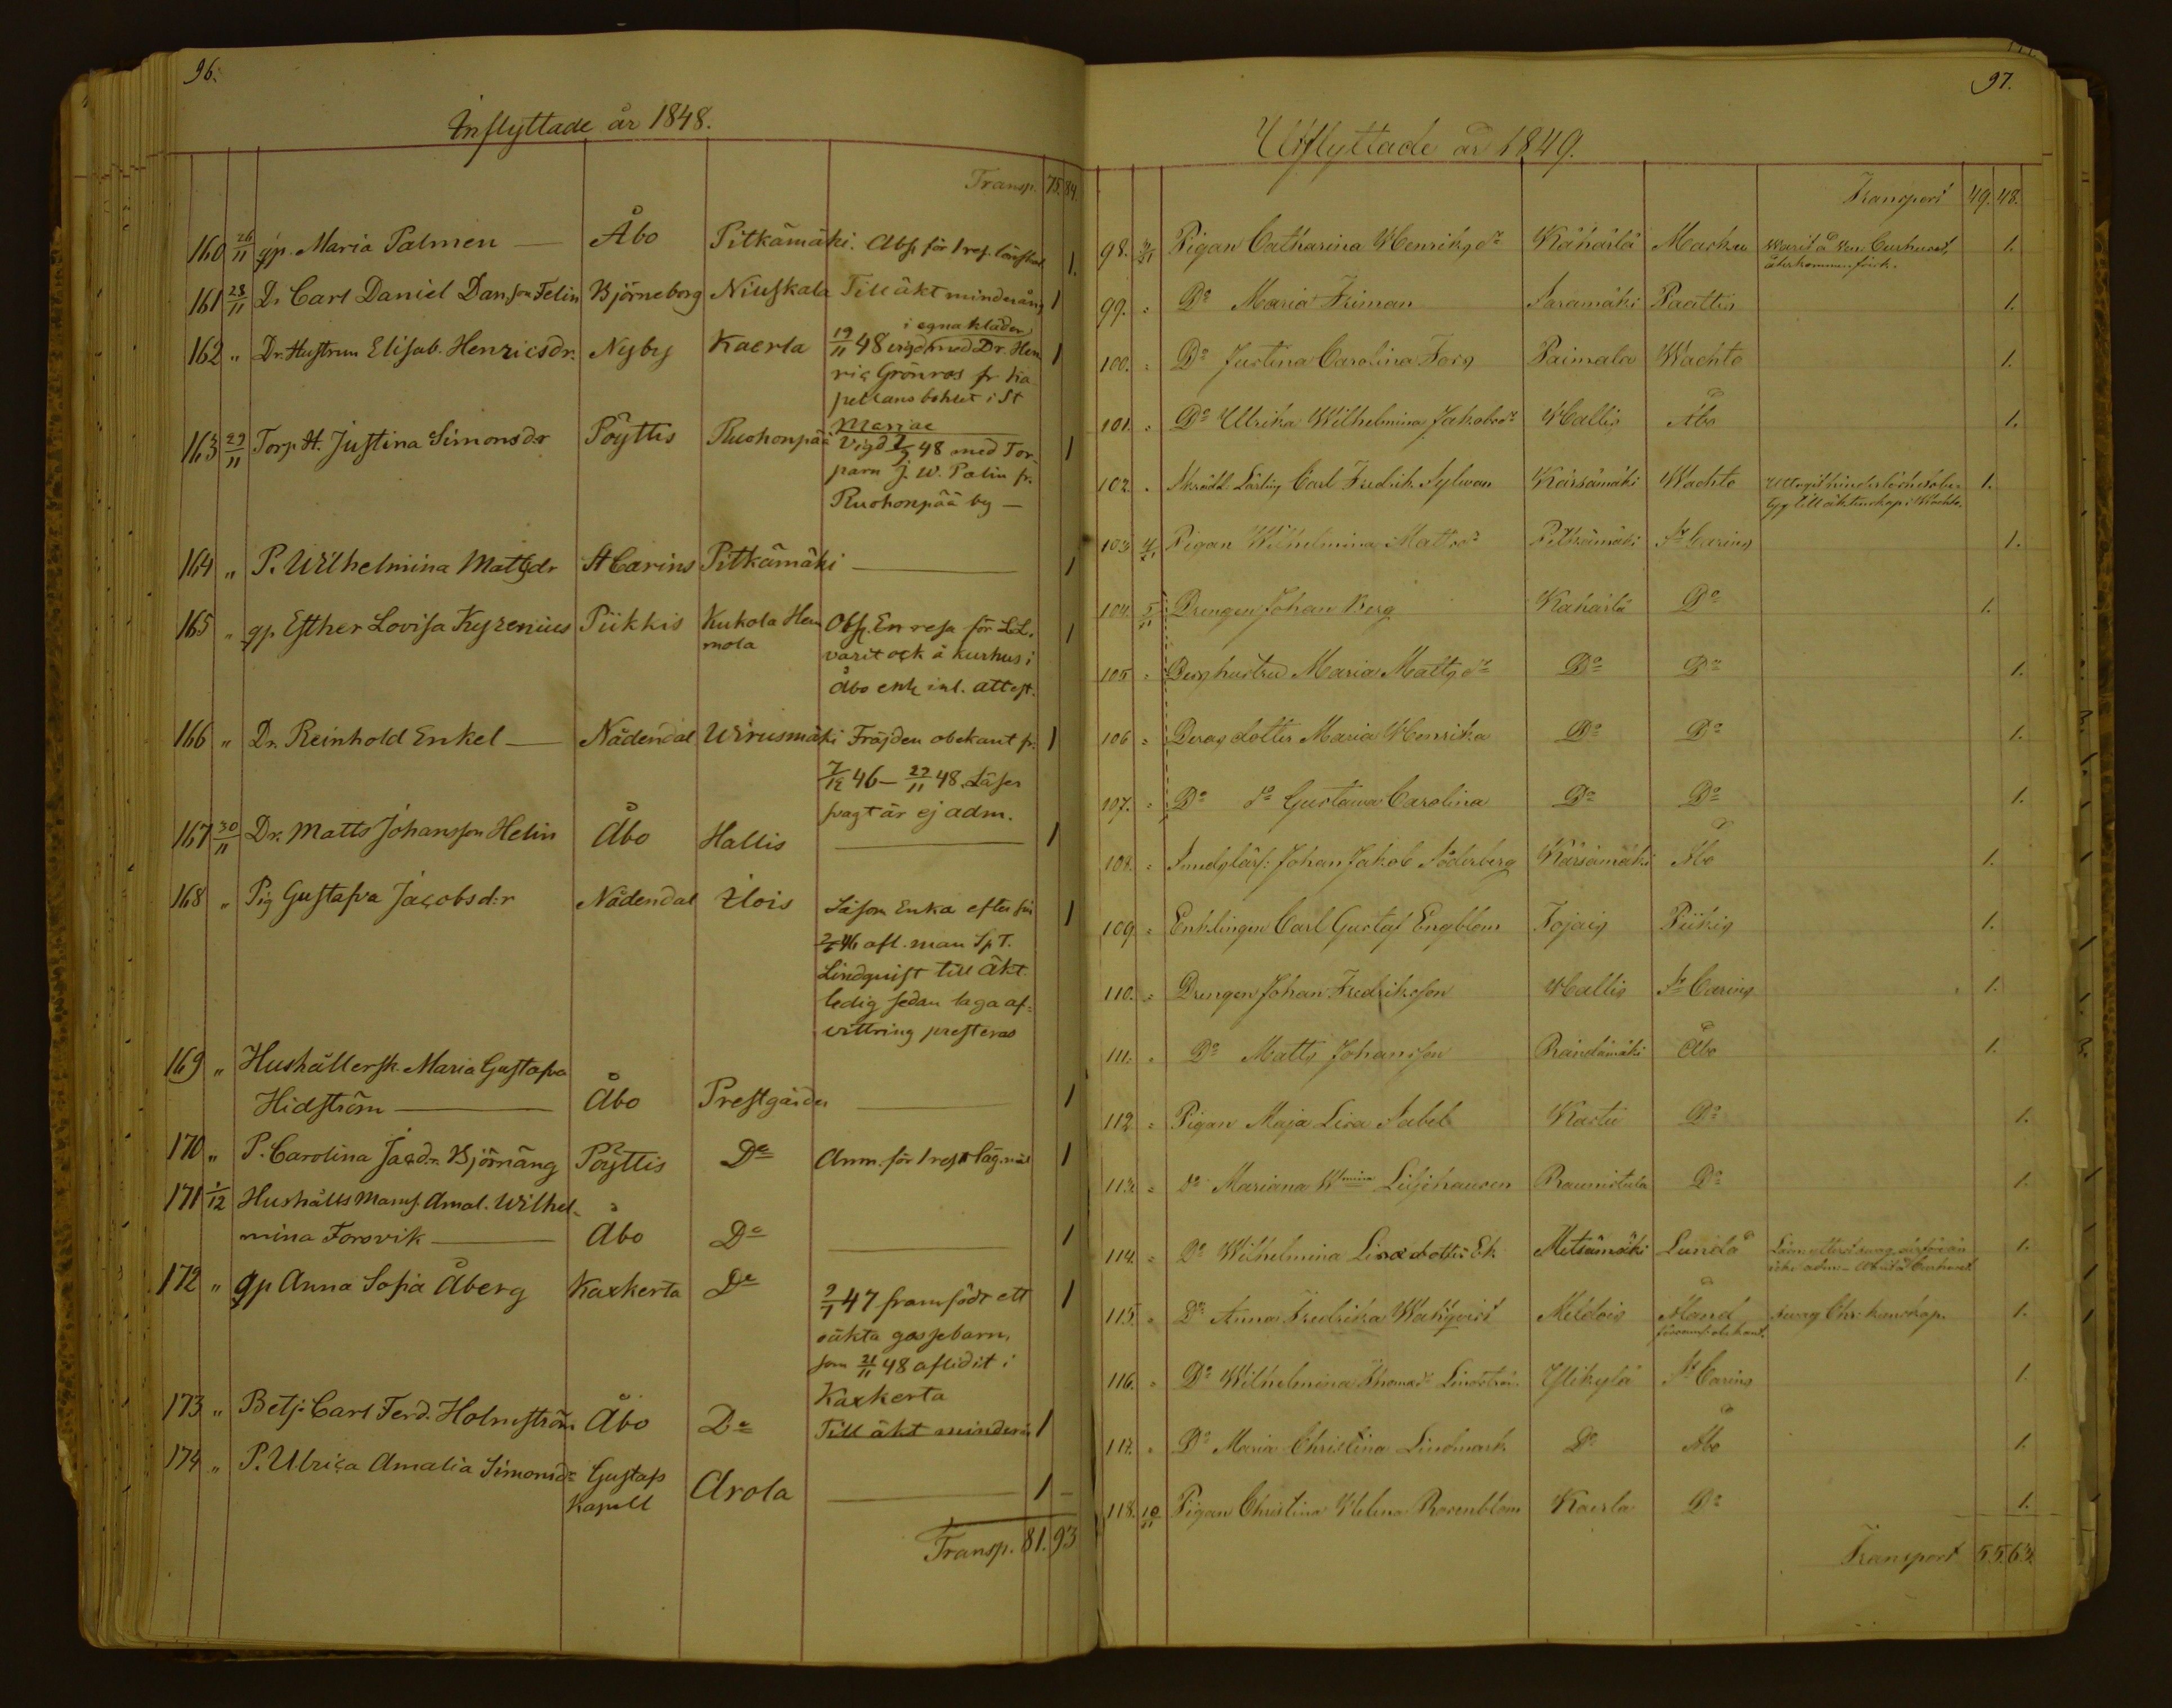 96.
Inflyttade år 1848.
Transp. 75. 84.
160 26/11 gp. Maria Palmen — Åbo Pitkämäki. Abs. för 1 res. 1.
161 28/11 Dr Carl Daniel Danson Felin Björneborg Niuskala Till äkt minderårig 1
i egna kläder
162 " Dr. Hustrun Elisab. Henricsdr. Nyby Kaerla 19/11 48 vigd med Dr. Hen 1
ric Grönros fr. Ka
pellans bohlet i St
Mariae
163 29/11 Torp. H. Justina Simonsdr Pöyttis Ruohonpää Vigd 48 med Tor- 1
parn J. W. Palin fr.
Ruohonpää by —
164 " P. Wilhelmina Mattsdr St Carins Pitkämäki — 1
165 " gp Esther Lovisa Kyrenius Piikkis Kukola Hem Obs. En resa för L.L. 1
mola varit ock å kurhus i
Åbo enl. inl. attest.
166 " Dr. Reinhold Enkel — Nådendal Wirusmäki Fräjden obekant fr. 1
7/12 46 — 22/11 48. Läser
svagt är ej adm.
167 30/11 Dr. Matts Johansson Helin Åbo Hallis — 1
168 " Pig Gustafva Jacobsd:r Nådendal Ilois Såsom Enka efter sin 1
46 afl. man Sp T.
Lindquist till äkt.
ledig sedan laga af-
vittring presteras
169 " Hushållersk. Maria Gustafva
Hidström — Åbo Prestgården — 1
170 " P. Carolina Jacdr. Björnäng Pöyttis Do Anm. för 1 resa läg.mål 1
171 1/12 Hushålls Mams. Amal. Wilhel-
mina Forsvik — Åbo Do — 1
172 " gp Anna Sofia Åberg Kaxkerta Do 9/1 47 framfödt ett 1
oäkta gossebarn,
som 21/11 48 aflidit i
Kaxkerta
173 " Betj. Carl Ferd. Holmström Åbo Do Till äkt minderå 1
174 " P. Ulrica Amalia Simonsdr Gustafs Arola — 1
Kapell
Transp. 81. 93
97.
Utflyttade år 1849.
Transport 49. 48.
98. Pigan Catharina Henriksdr Kähärlä Masku Warit å Curhuset, 1.
återkommen frisk.
99. " Do Maria Friman Saramäki Paattis 1.
100. " Do Justina Carolina Fors Paimala Wachto 1.
101. " Do Ulrika Wilhelmina Jakobsdr Hallis Åbo 1.
102. " Skrädd. Lärling Carl Fredrik Sylwan Kärsämäki Wachto Uttagit hinderlöshetsbe- 1.
tyg till äktenskap i Wachto.
103 4/11 Pigan Wilhelmina Mattsdr Pitkämäki St Carins 1.
104. 5/11 Drengen Johan Berg Kähärlä Do 1.
105 " Bergs hustru Maria Mattsdr Do Do 1.
106 " Bergs dotter Maria Henrika Do Do 1.
107. " Do do Gustawa Carolina Do Do 1.
108. " Smedslärl: Johan Jakob Söderberg Kärsämäki Åbo 1.
109 " Enklingen Carl Gustaf Engblom Tojais Piikis 1.
110. " Drengen Johan Fredriksson Hallis St Carins 1.
111. " Do Matts Johansson Räntämäki Åbo 1.
112 " Pigan Maja Lisa Sabel Kastu Do 1.
113. " Do Mariana Wmina Liljehausen Raunistula Do 1.
114. " Do Wilhelmina Lisadotter Ek Metsämäki Lundå 1.
115. " Do Anna Fredrika Wahlqvist Meldois Åland Swag Chr. kunskap. 1.
116. " Do Wilhelmina Thomasdr Lindström Ylikylä St Carins 1.
117. " Do Maria Christina Lindmark Do Åbo 1.
118. 10/11 Pigan Christina Helena Rosenblom Kaerla Do 1.
Transport 55. 63.